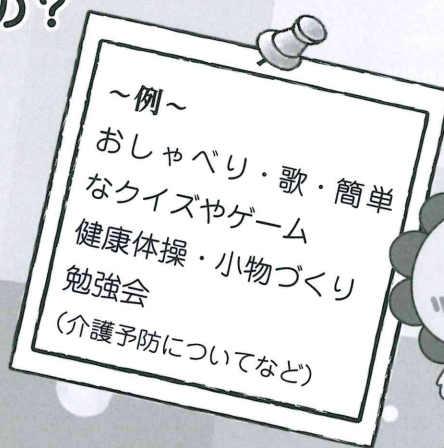 の？
～例～
おしゃべり・歌・簡単
なクイズやゲーム
健康体操・小物づくり
勉強会
（介護予防についてなど）